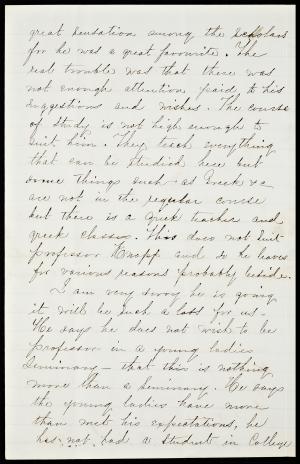 great sensation among the scholars
for he was a great favourite. The
real trouble was that there was
not enough attention paid to his
suggestions and wishes. The course
of study is not high enough to
suit him. They teach everything
that can be studied here but
some things such as Greek &c
are not in the regular course
but there is a Greek teacher and
greek classes. This does not suit
Professor Knapp and so he leaves
for various reasons probably beside.
I am very sorry he is going
it will be such a loss for us -
He says he does not wish to be
Professor in a young ladies
Seminary - that this is nothing
more than a Seminary. He says
the young ladies have more
than met his expectations, he
has not had a student in College